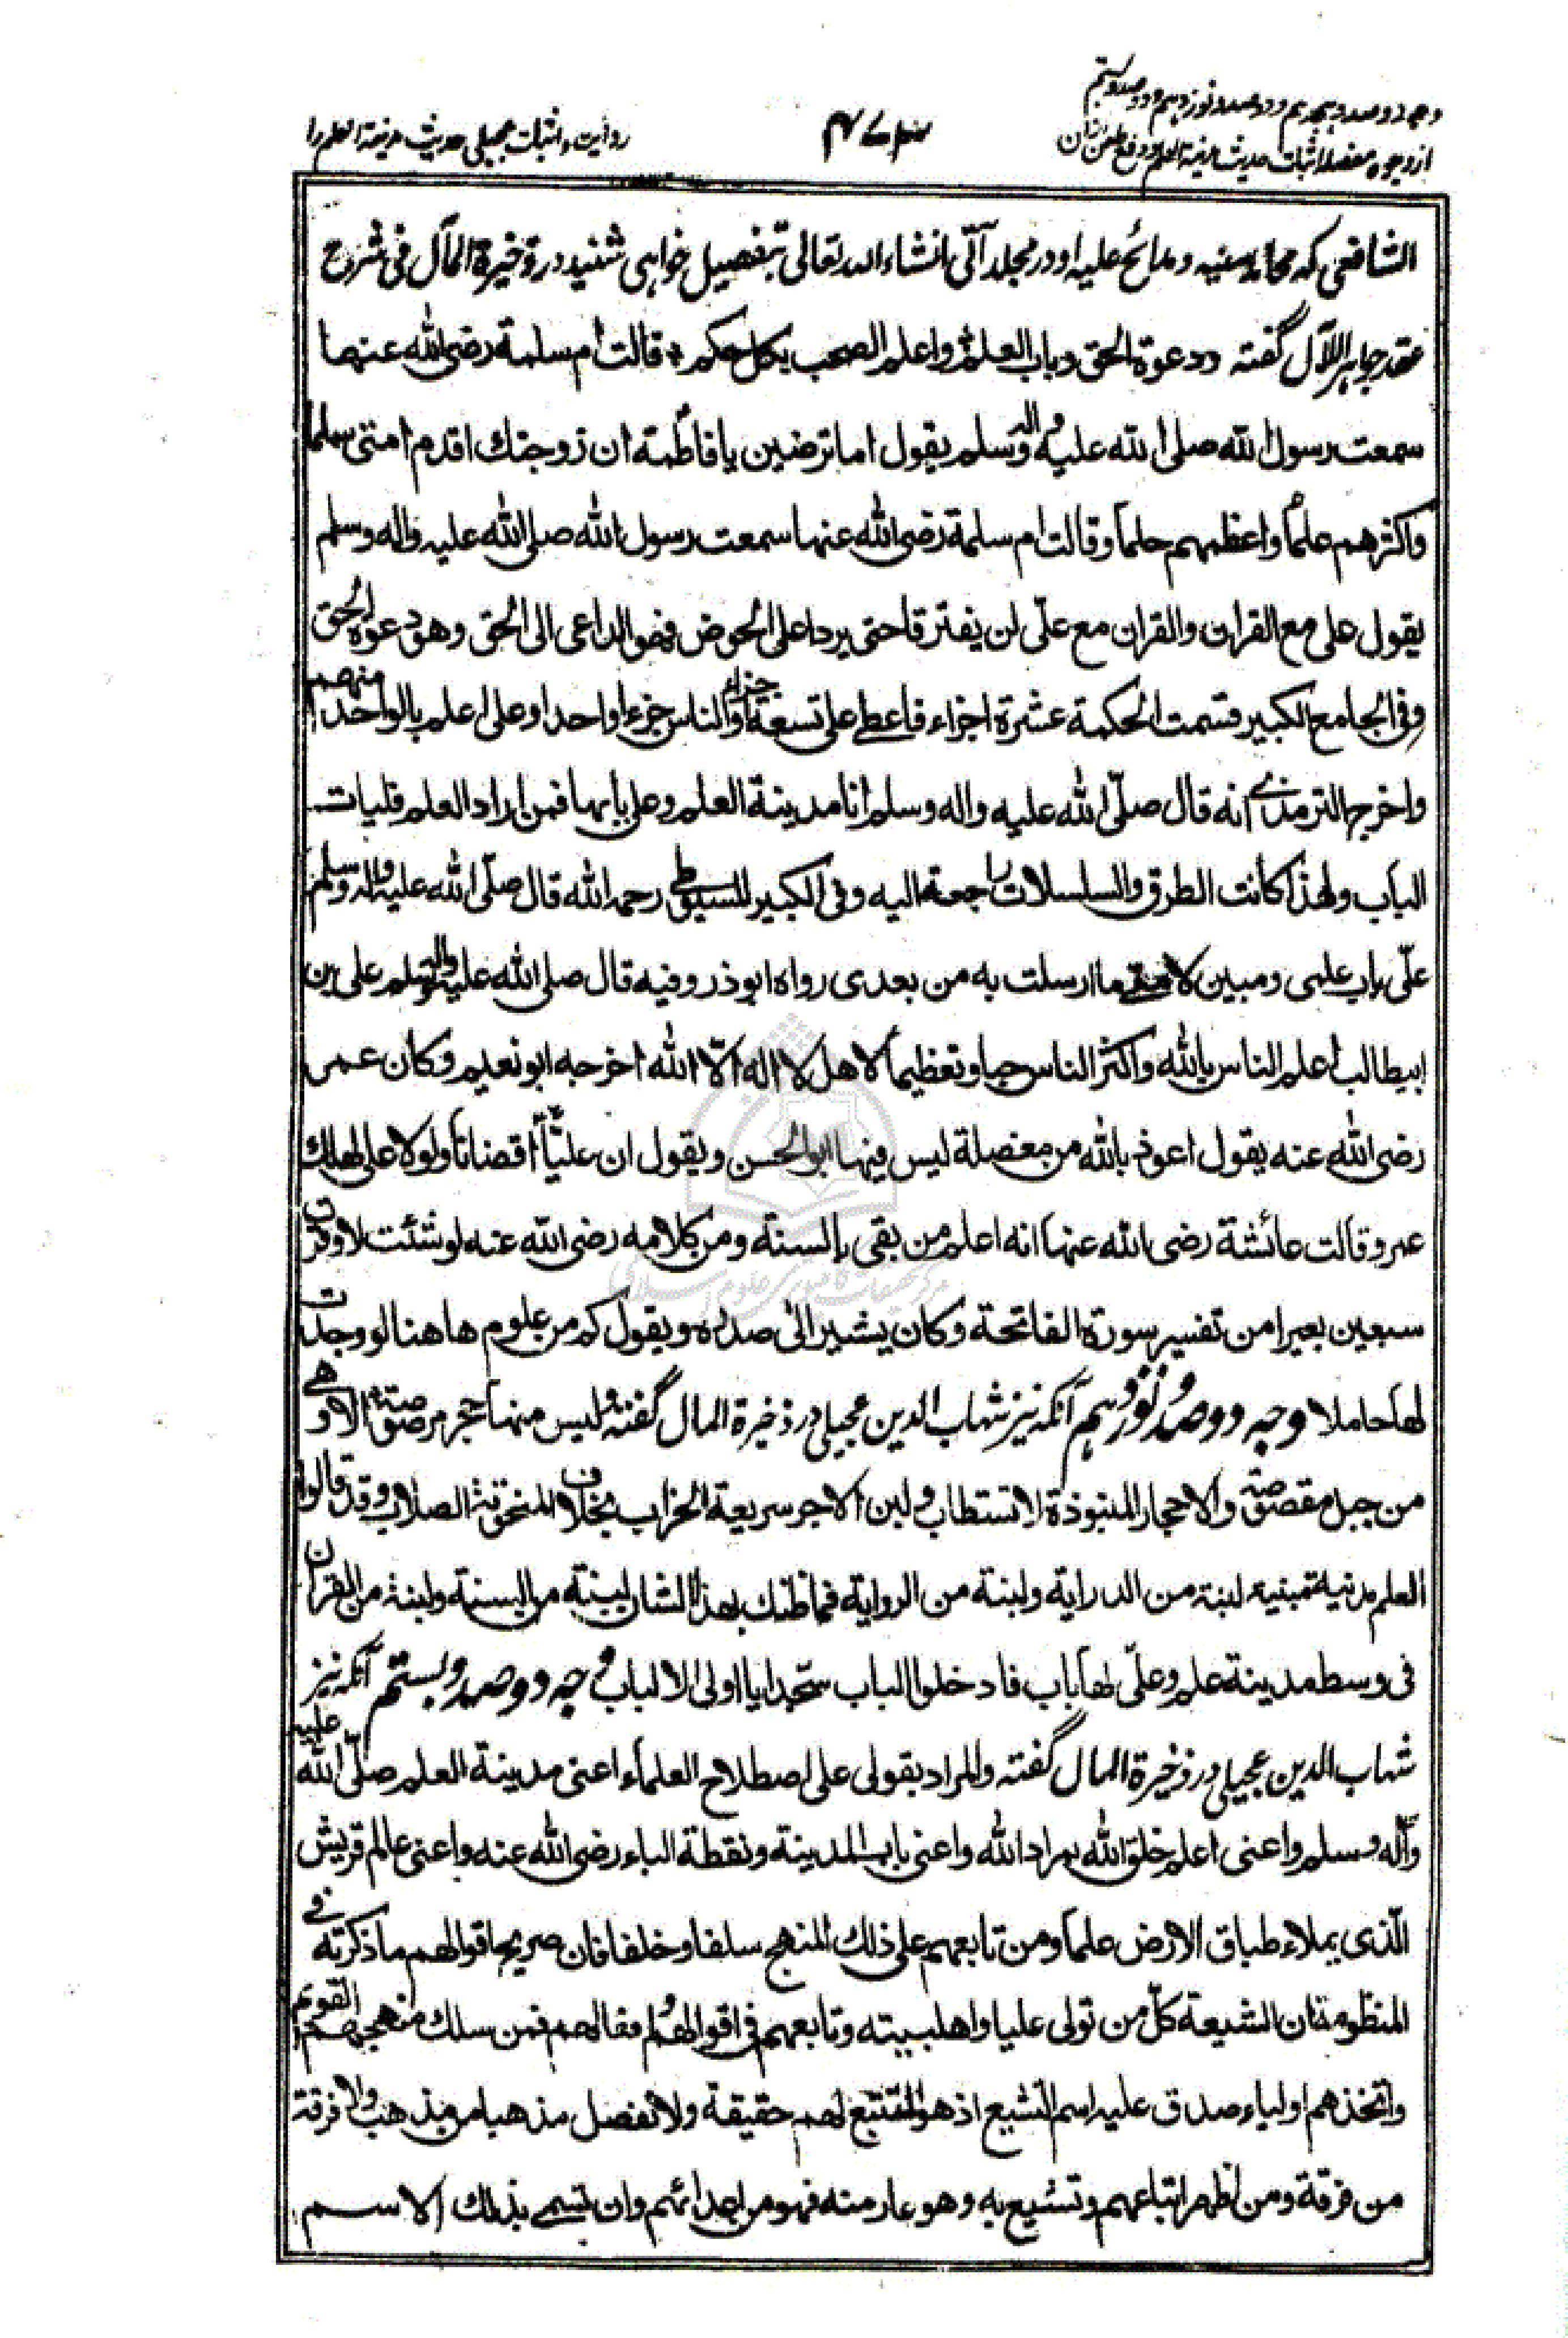 وجه دو صد و هجدهم و دو صد و نوزدهم و دو صد و بستم
از وجوه مفصله اثبات حدیث مدینة العلم و دفع طعن از ان
۴۷۳
روایت و اثبات عجیلی حدیث مدینة العلم را
الشافعی که محامد سنیه و مدائح علیه او در مجلد آتی انشاء الله تعالی بتفصیل خواهی شنید در ذخیرة المآل فی شرح
عقد جواهر اللآل گفته ودعوة الحق وباب العلم واعلم الصحب بکل حکم قالت أم سلمة رضی الله عنها
سمعت رسول الله صلی الله علیه واله وسلم یقول اما ترضین یا فاطمة ان زوجتك اقدم امتی سلما
واکثرهم علماً واعظمهم حلماً وقالت ام سلمة رضی الله عنها سمعت رسول الله صلی الله علیه واله وسلم
یقول علی مع القران والقران مع علّی لن یفترقا حتی یردا علی الحوض فهو الداعی الی الحق وهو دعوة الحق
وفی الجامع الکبیر قسمت الحکمة عشرة اجزاء فاعطی علی تسعة اجزاء والناس جزءا واحدا وعلی اعلم بالواحد منهم
واخرج الترمذی انه قال صلّی الله علیه واله وسلم انا مدینة العلم وعلی بابها فمن اراد العلم فلیات
الباب ولهذا کانت الطرق والسلسلات راجعة الیه وفی الکبیر للسیوطی رحمه الله قال صلّی الله علیه واله وسلم
علّی باب علمی ومبین لامتی ما ارسلت به من بعدی رواه ابوذر وفیه قال صلی الله علیه واله وسلم علی بن
ابیطالب اعلم الناس بالله واکثر الناس حبا وتعظیماً لاهل لا اله الّا الله اخرجه ابو نعیم وکان عمر
رضی الله عنه یقول اعوذ بالله من معضلة لیس فیها ابو الحسن ویقول ان علیّاً اقضانا ولولا علی لهلك
عمر وقالت عائشة رضی الله عنها انه اعلم من بقی بالسنة ومن کلامه رضی الله عنه لو شئت لاوقرن
سبعین بعیرا من تفسیر سورة الفاتحة وکان یشیر الی صدره ویقول کم من علوم هاهنا لو وجدت
لها حاملا وجه دو صد و نوزدهم آنکه نیز شهاب الدین عجیلی در ذخیرة المال گفته ولیس منها حجر مرصصة الا وهی
من جبل مقصصة والاحجار المنبوذة لا تستطاب ولبن الاجر سریعة الخراب بخلاف المنحوتة الصلاب وقد قالوا
العلم مدنیة مبنیة لبنة من الدرایة ولبنة من الروایة فما ظنك بهذا الشان لبنة من السنة ولبنة من القران
فی وسط مدینة علم وعلّی لها باب فادخلوا الباب سجّدا یا اولی الالباب وجه دو صد و بستم آنکه نیز
شهاب الدین عجیلی در ذخیرة المال گفته والمراد بقولی علی اصطلاح العلماء اعنی مدینة العلم صلّی الله علیه
وآله وسلم واعنی اعلم خلق الله بمراد الله واعنی باب المدینة ونقطة الباء رضی الله عنه واعنی عالم قریش
الّذی یملاء طباق الارض علماً ومن تابعهم علی ذلك المنهج سلفا وخلفا فان صریح اقوالهم ما ذکرته فی
المنظومة فان الشیعة کلّ من تولی علیا واهلبیته وتابعهم فی اقوالهم وافعالهم فمن سلك منهجهم القویم
واتخذهم اولیاء صدق علیه اسم التشیع اذ هو المتتبع لهم حقیقة ولا نفصل مذهبا من مذهب ولا فرقة
من فرقة ومن اظهر اتباعهم وتشیع به وهو عار منه فهو من اعدائهم وان تسمی بذلك الاسم